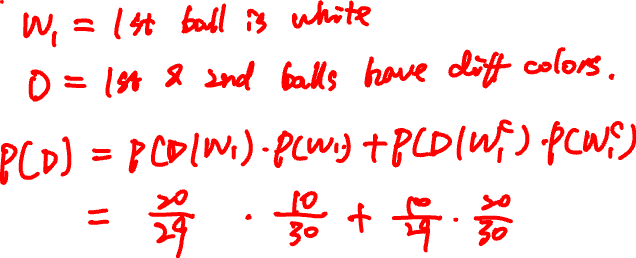 W₁ = 1st ball is white
D = 1st & 2nd balls have diff colors.
P(D) = P(D|W₁)·P(W₁) + P(D|W₁ᶜ)·P(W₁ᶜ)
= 20/29 · 10/30 + 10/29 · 20/30